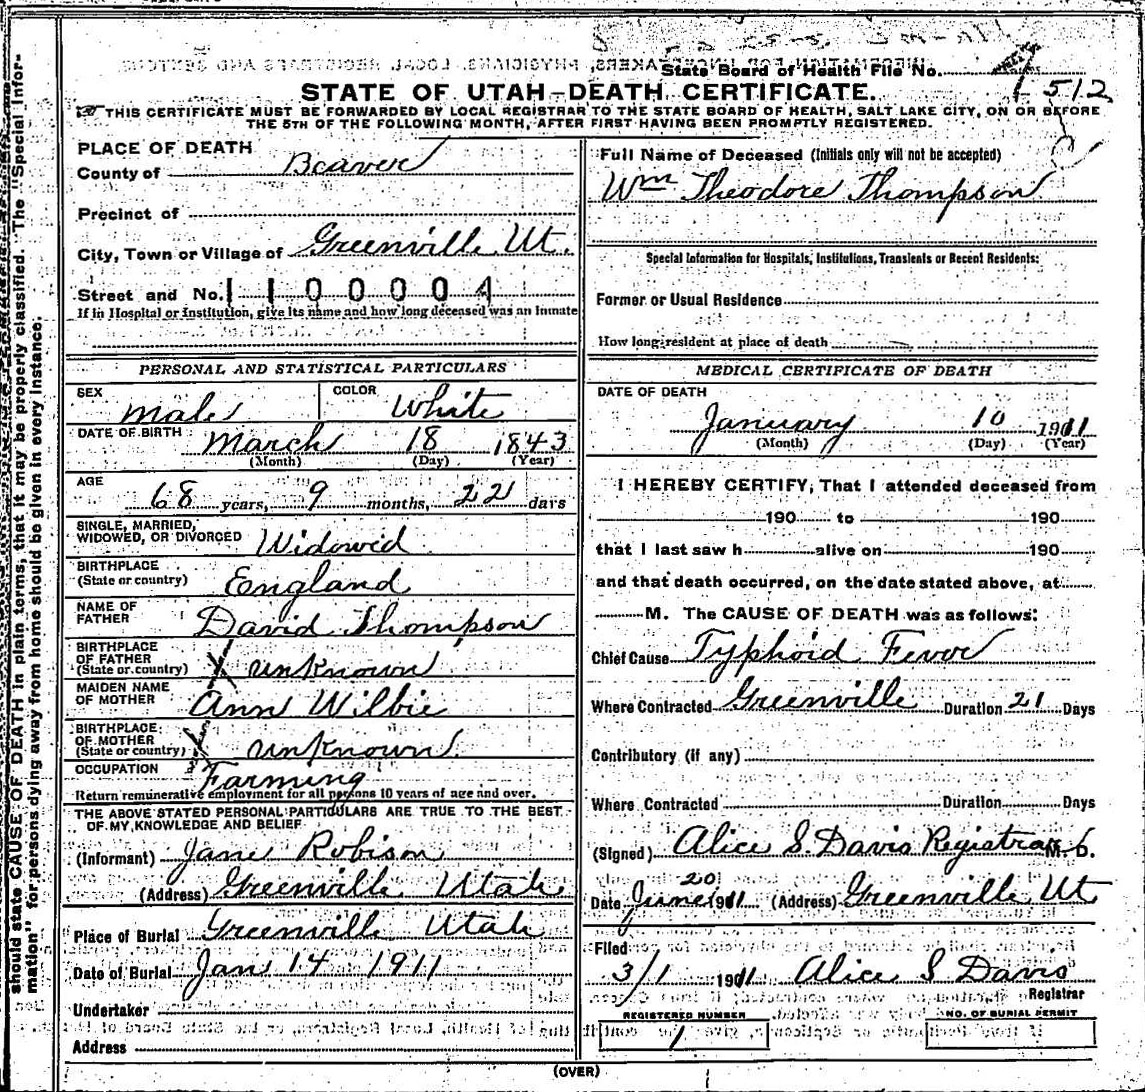 State Board of Health File No.
512
STATE OF UTAH—DEATH CERTIFICATE.
THIS CERTIFICATE MUST BE FORWARDED BY LOCAL REGISTRAR TO THE STATE BOARD OF HEALTH, SALT LAKE CITY, ON OR BEFORE
THE 5TH OF THE FOLLOWING MONTH, AFTER FIRST HAVING BEEN PROMPTLY REGISTERED.
PLACE OF DEATH
County of Beaver
Precinct of
City, Town or Village of Greenville Ut.
Street and No. 1100004
If in Hospital or Institution, give its name and how long deceased was an inmate
PERSONAL AND STATISTICAL PARTICULARS
SEX Male COLOR White
DATE OF BIRTH March 18 1843
(Month) (Day) (Year)
AGE
68 years, 9 months, 22 days
SINGLE, MARRIED,
WIDOWED, OR DIVORCED Widowid
BIRTHPLACE
(State or country) England
NAME OF
FATHER David Thompson
BIRTHPLACE
OF FATHER
(State or country) unknown
MAIDEN NAME
OF MOTHER Ann Wilbie
BIRTHPLACE
OF MOTHER
(State or country) unknown
OCCUPATION Farming
Return remunerative employment for all persons 10 years of age and over.
THE ABOVE STATED PERSONAL PARTICULARS ARE TRUE TO THE BEST
OF MY KNOWLEDGE AND BELIEF
(Informant) Jane Robison
(Address) Greenville Utah
Place of Burial Greenville Utah
Date of Burial Jan 14 1911
Undertaker
Address
Full Name of Deceased (Initials only will not be accepted)
Wm Theodore Thompson
Special Information for Hospitals, Institutions, Transients or Recent Residents:
Former or Usual Residence
How long resident at place of death
MEDICAL CERTIFICATE OF DEATH
DATE OF DEATH
January 10 1911
(Month) (Day) (Year)
I HEREBY CERTIFY, That I attended deceased from
190 to 190
that I last saw h alive on 190
and that death occurred, on the date stated above, at
M. The CAUSE OF DEATH was as follows:
Chief Cause Typhoid Fever
Where Contracted Greenville Duration 21 Days
Contributory (if any)
Where Contracted Duration Days
(Signed) Alice S. Davis Registrar M.D.
Date June 20 1911 (Address) Greenville Ut
Filed
3/1 1911 Alice S Davis
Registrar
REGISTERED NUMBER
1
NO. OF BURIAL PERMIT
(OVER)
should state CAUSE OF DEATH in plain terms, that it may be properly classified. The "Special Infor-
mation" for persons dying away from home should be given in every instance.